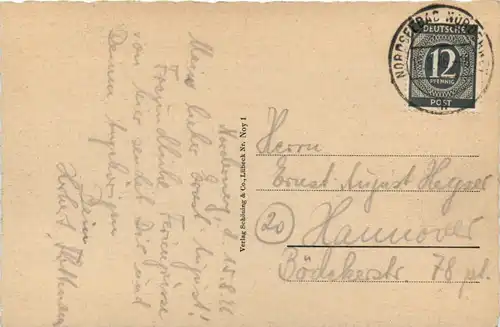 Norderney, d. 15.8.46
Mein lieber Ernst-August!
Freundliche Feriengrüsse
von hier sendet Dir und
Deinen Angehörigen
Dein
Verlag Schöning & Co., Lübeck Nr. Noy 1
NORDSEEBAD NORDERNEY
DEUTSCHE
12
PFENNIG
POST
Herrn
Ernst-August
(20) Hannover
Bödekerstr. 78 pt.